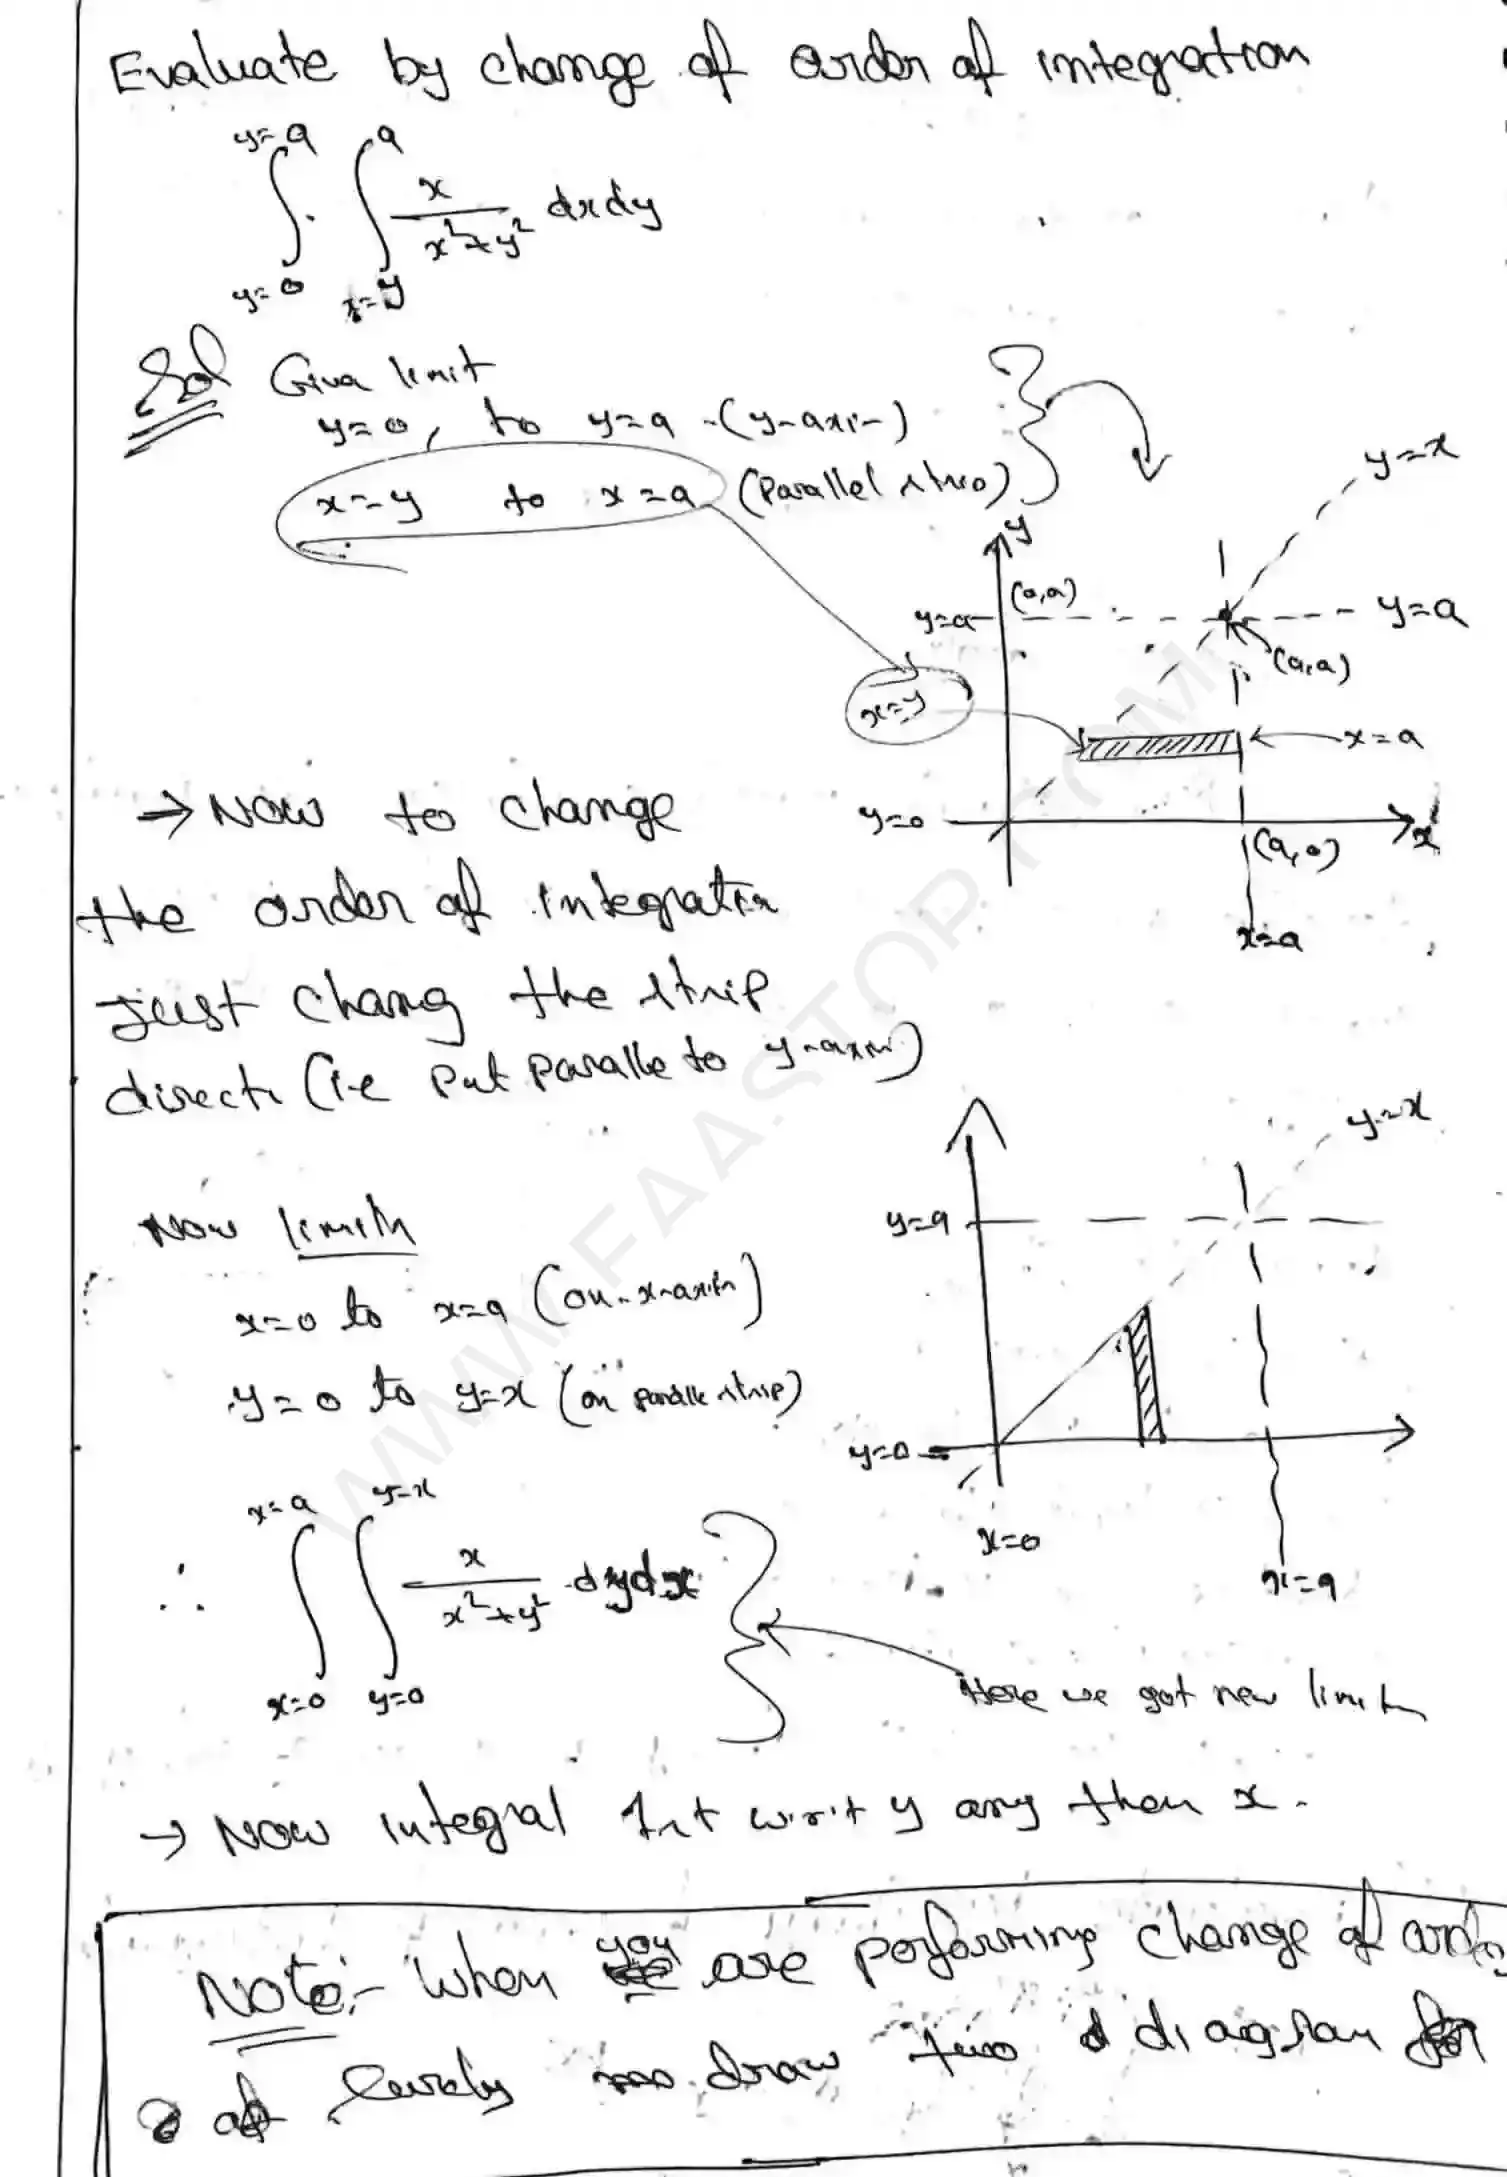 Evaluate by change of order of integration
y=a a
∫ ∫ x/(x²+y²) dxdy
y=0 x=y
Sol Givn limit
y=0, to y=a -(y-axi-)
x=y to x=a (Parallel strip)
y
y=x
y=a (0,a) y=a
(a,a)
x=y
x=a
y=0 x
(a,0)
x=a
→ Now to change
the order of integratin
just chang the strip
directi (i.e Put Paralle to y-axis)
y=x
Now limits
y=a
x=0 to x=a (on x-axis)
y=0 to y=x (on paralle strip)
y=0
x=0
x=a
x=a y=x
∴ ∫ ∫ x/(x²+y²) dydx
x=0 y=0
Here we got new limits
→ Now integral 1st w.r.t y any then x.
Note:- When you are performing change of order
of draw two diagram for